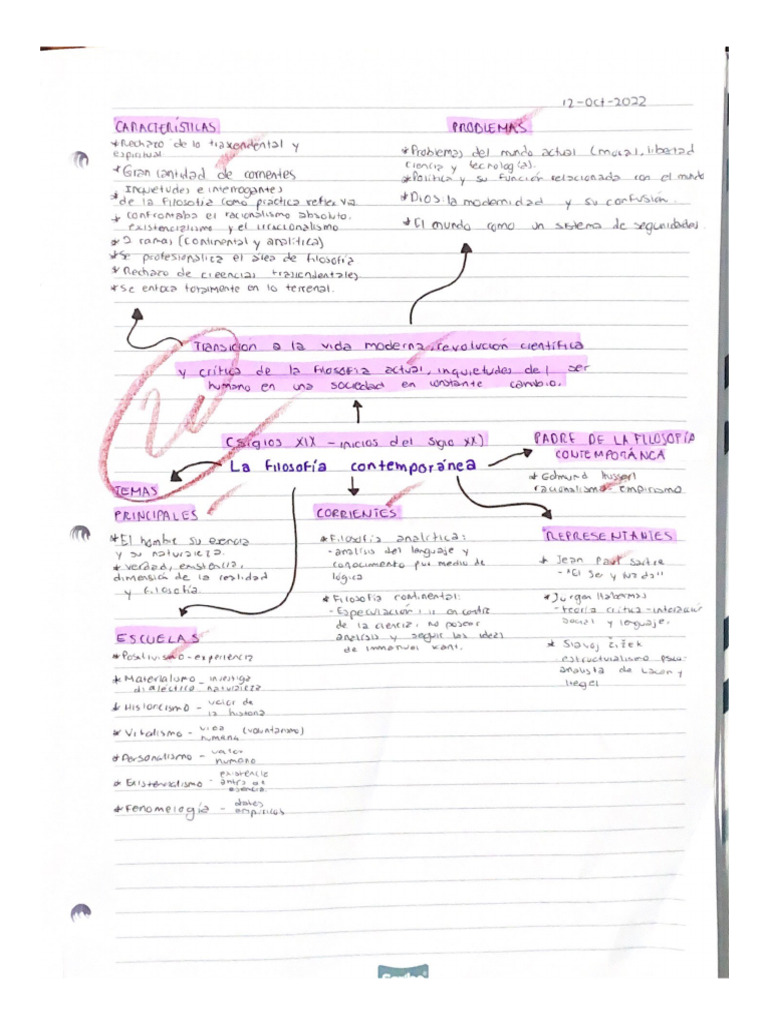 12-Oct-2022
CARACTERÍSTICAS
*Rechazo de lo traxendental y
espiritual
*Gran cantidad de corrientes
Inquietudes e interrogantes
de la filosofia como práctica reflexiva
* confrontaba el racionalismo absoluto.
existencialismo y el irracionalismo
*2 ramas (continental y analítica)
*Se profesionaliza el área de filosofía
*Rechazo de creencias trascendentales
*Se enfoca totalmente en lo terrenal.
PROBLEMAS
*Problemas del mundo actual (moral, libertad
ciencia y tecnología).
*Política y su función relacionada con el mundo
*Dios: la modernidad y su confusión.
*El mundo como un sistema de seguridades.
Transición a la vida moderna, revolución científica
y crítica de la filosofía actual, inquietudes del ser
humano en una sociedad en constante cambio.
20
(siglos XIX - inicios del siglo XX)
La filosofía contemporánea
PADRE DE LA FILOSOFÍA
CONTEMPORÁNCA
* Edmund Husserl
racionalismo - empirismo
TEMAS
PRINCIPALES
*El hombre su esencia
y su naturaleza.
* verdad, existencia,
dimensión de la realidad
y filosofía
CORRIENTES
*Filosofía analítica:
-analisis del lenguaje y
conocimiento por medio de
lógica
*Filosofía continental:
-Especulación, en contra
de la ciencia, no poseer
analisis y seguir las ideas
de Immanuel Kant.
REPRESENTANTES
* Jean Paul Sartre
- "El Ser y Nada"
*Jurgen Habermas
-teoría crítica-interacción
social y lenguaje.
* Slavoj Žižek
estructuralismo psico-
analista de Lacan y
Hegel
ESCUELAS
*Positivismo-experiencia
*Materialismo - investiga
dialéctico naturaleza
*Historicismo - valor de
la historia
*Vitalismo - vida (voluntarismo)
humana
*Personalismo - valor
humano
*Existencialismo - existencia
antes de
esencia
*Fenomelogía - datos
empíricos